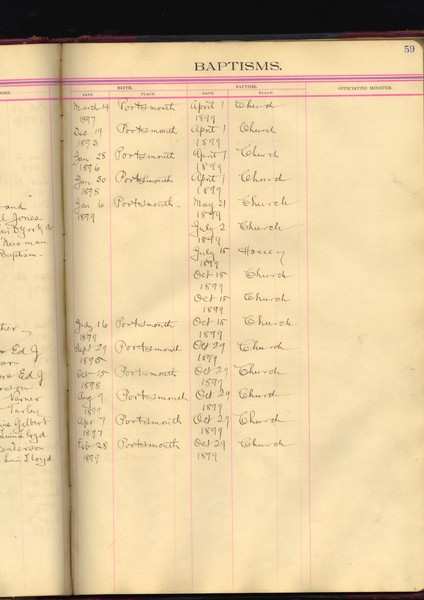 59
BAPTISMS.
BIRTH. BAPTISM. OFFICIATING MINISTER.
DATE. PLACE. DATE. PLACE.
March 19 Portsmouth April 1 Church
1897 1899
Dec 19 Portsmouth April 1 Church
1899
Jan 28 Portsmouth April 1 Church
1896 1899
Jan 30 Portsmouth April 1 Church
1898 1899
Jan 6 Portsmouth - May 21 Church
and 1899 1899
Jones July 2 Church
1899
July 15
Baptism - 1899
Oct 15 Church
1899
Oct 15 Church
1899
July 16 Portsmouth Oct 15 Church
1899 1899
Ed J Sept 29 Portsmouth Oct 29 Church
1899
Ed J Oct 15 Portsmouth Oct 29 Church
1898 1899
Verner Aug 9 Portsmouth Oct 29 Church
1899
Gilbert Apr 7 Portsmouth Oct 29 Church
Lloyd 1897 1899
Feb 28 Portsmouth Oct 29 Church
Lloyd 1899 1899